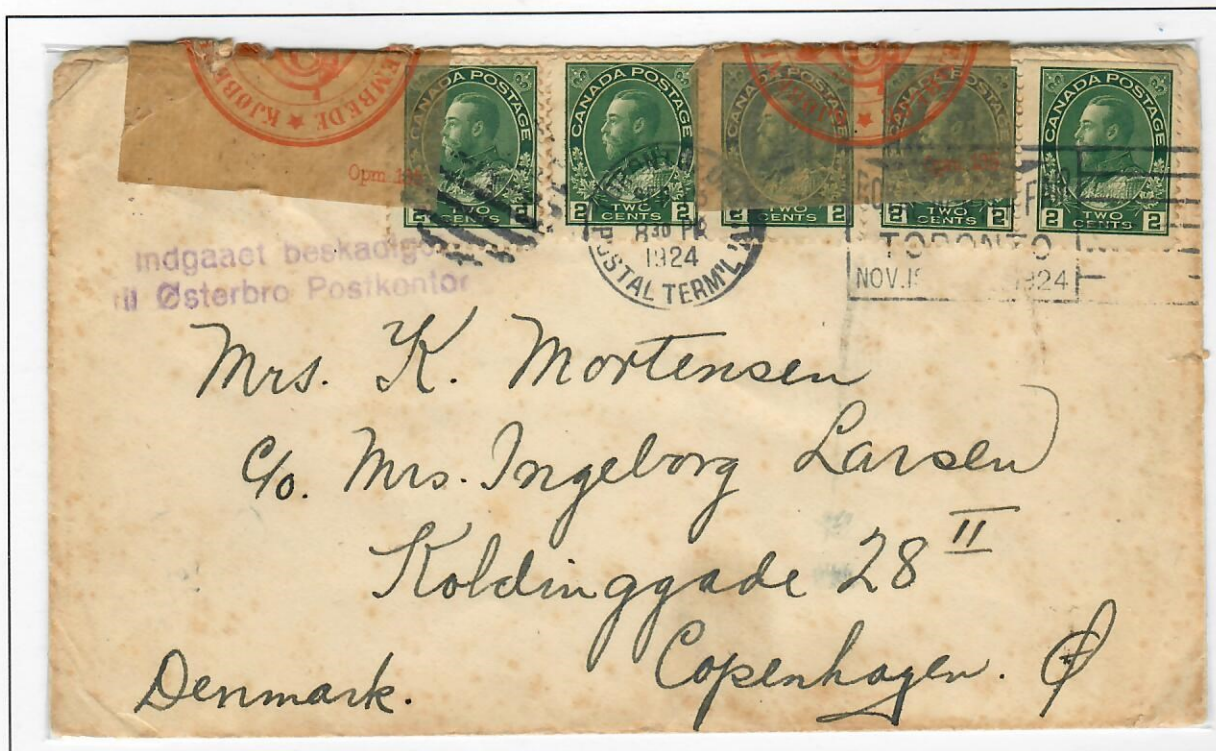 EMBEDE ★ KJØB
CANADA POSTAGE
2 TWO CENTS 2
CANADA POSTAGE
2 TWO CENTS 2
CANADA POSTAGE
2 TWO CENTS 2
CANADA POSTAGE
2 TWO CENTS 2
CANADA POSTAGE
2 TWO CENTS 2
Opm
8 30 PM
1924
POSTAL TERM'L 'A'
TORONTO
NOV. 1924
Indgaaet beskadige
til Østerbro Postkontor
Mrs. K. Mortensen
c/o. Mrs. Ingeborg Larsen
Koldinggade 28 II
Copenhagen. Ø
Denmark.